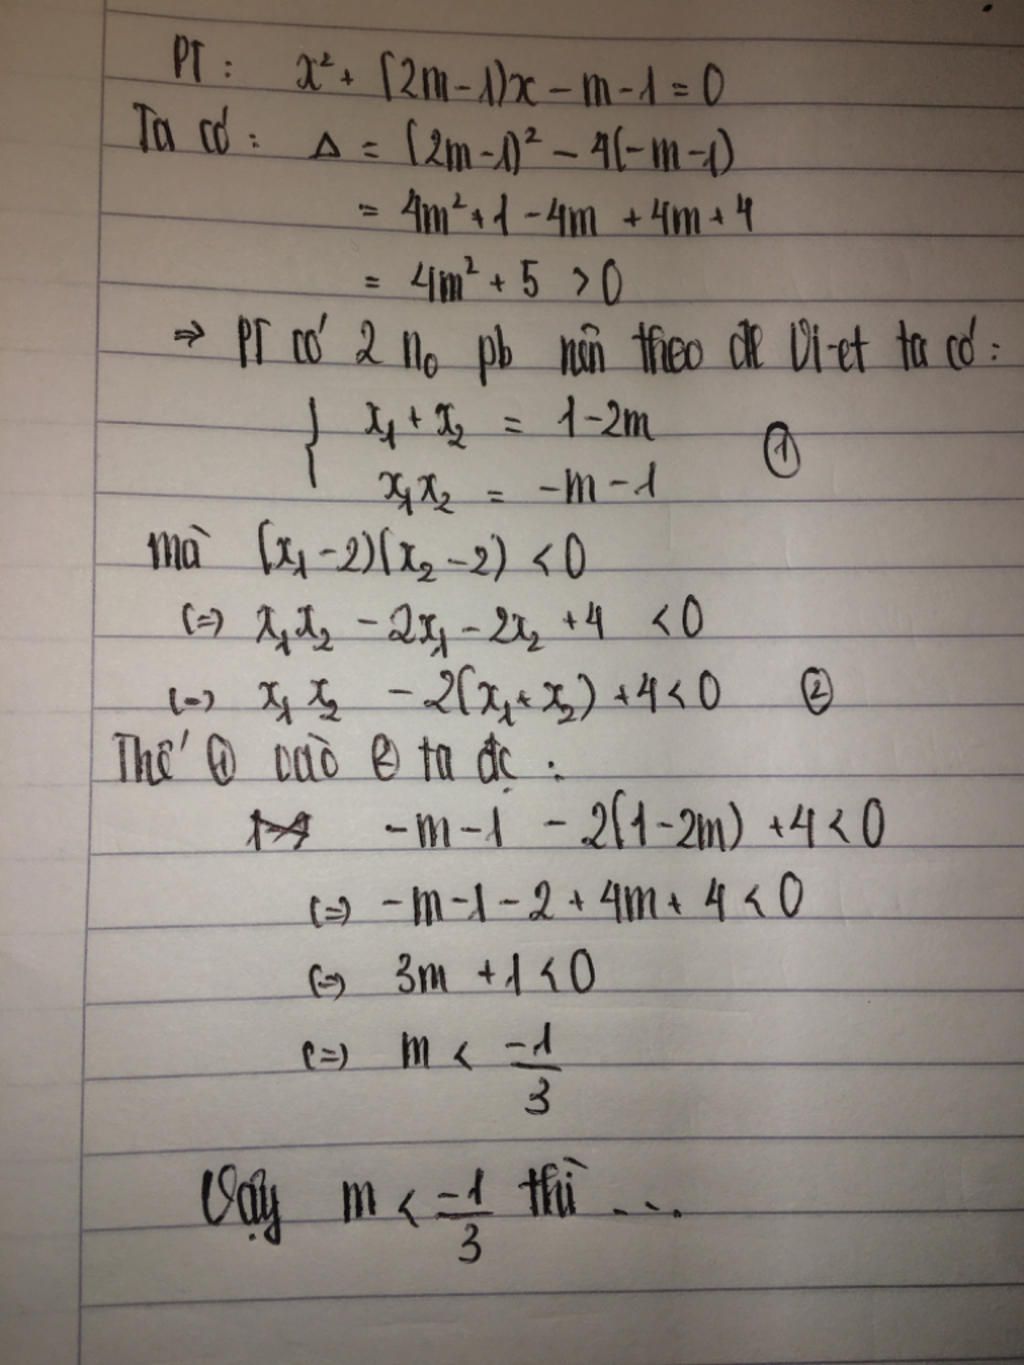 PT : x² + (2m-1)x - m - 1 = 0
Ta có : Δ = (2m-1)² - 4(-m-1)
= 4m² + 1 - 4m + 4m + 4
= 4m² + 5 > 0
⇒ PT có 2 n₀ pb nên theo đl Vi-et ta có :
{ x₁ + x₂ = 1-2m
x₁x₂ = -m-1 ①
mà (x₁-2)(x₂-2) < 0
(=) x₁x₂ - 2x₁ - 2x₂ + 4 < 0
(=) x₁x₂ - 2(x₁+x₂) + 4 < 0 ②
Thế ① vào ② ta đc :
-m-1 - 2(1-2m) + 4 < 0
(=) -m-1-2+4m+4 < 0
(=) 3m + 1 < 0
(=) m < -1/3
Vậy m < -1/3 thì ...